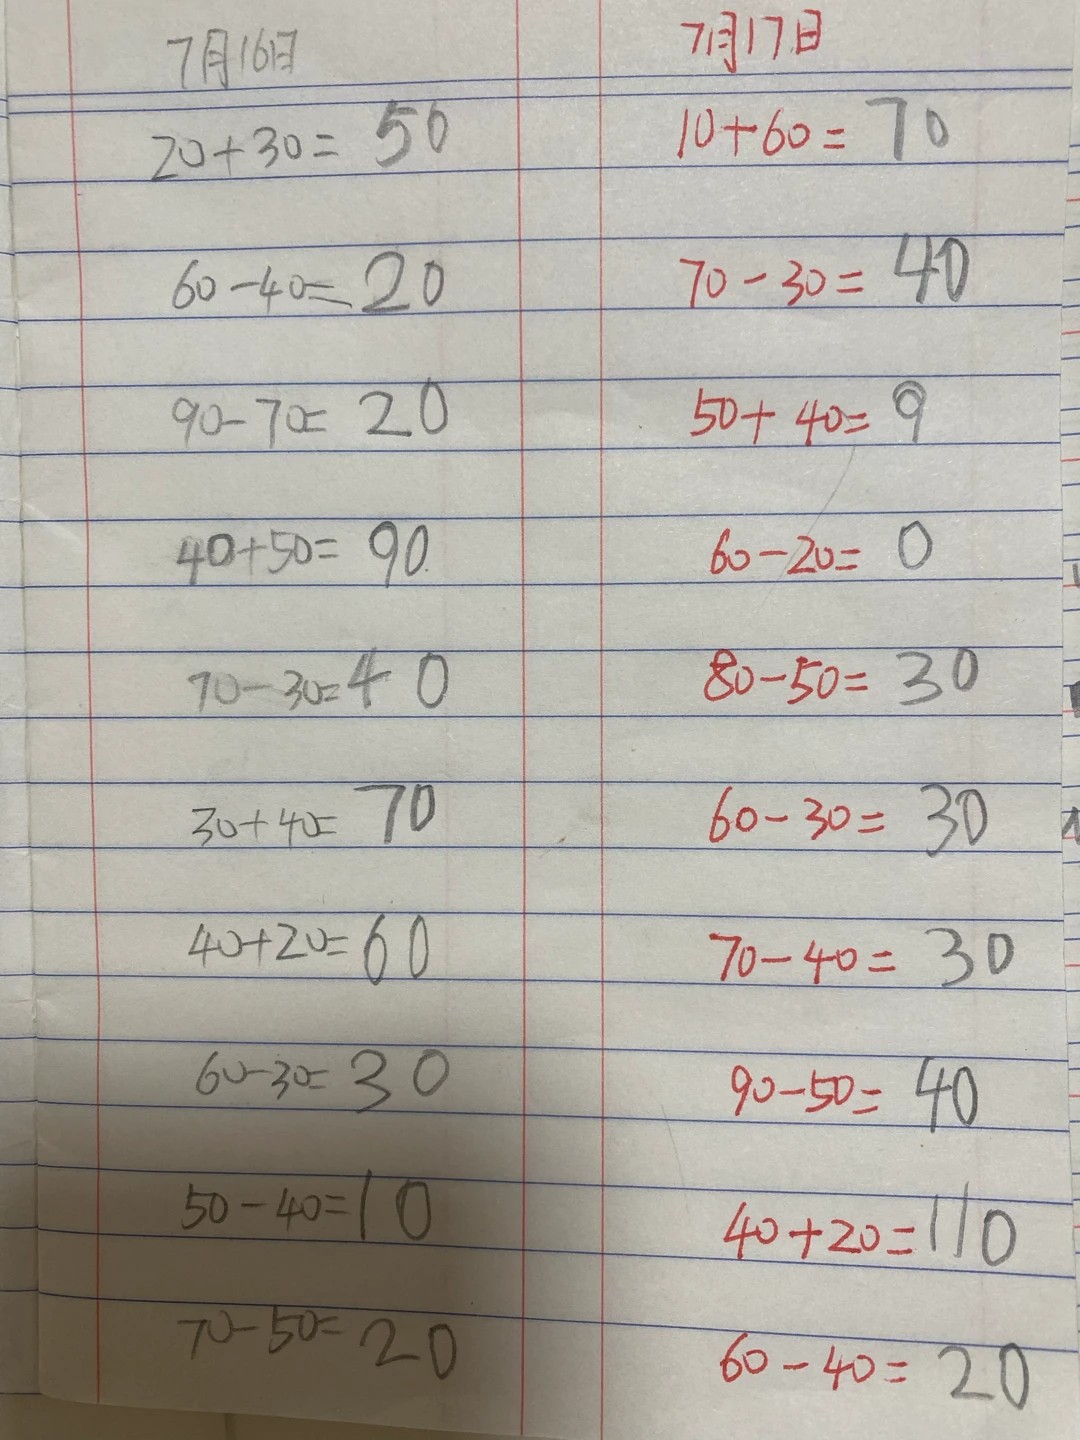 7月16日
20+30=50
60-40=20
90-70=20
40+50=90
70-30=40
30+40=70
40+20=60
60-30=30
50-40=10
70-50=20
7月17日
10+60=70
70-30=40
50+40=9
60-20=0
80-50=30
60-30=30
70-40=30
90-50=40
40+20=110
60-40=20